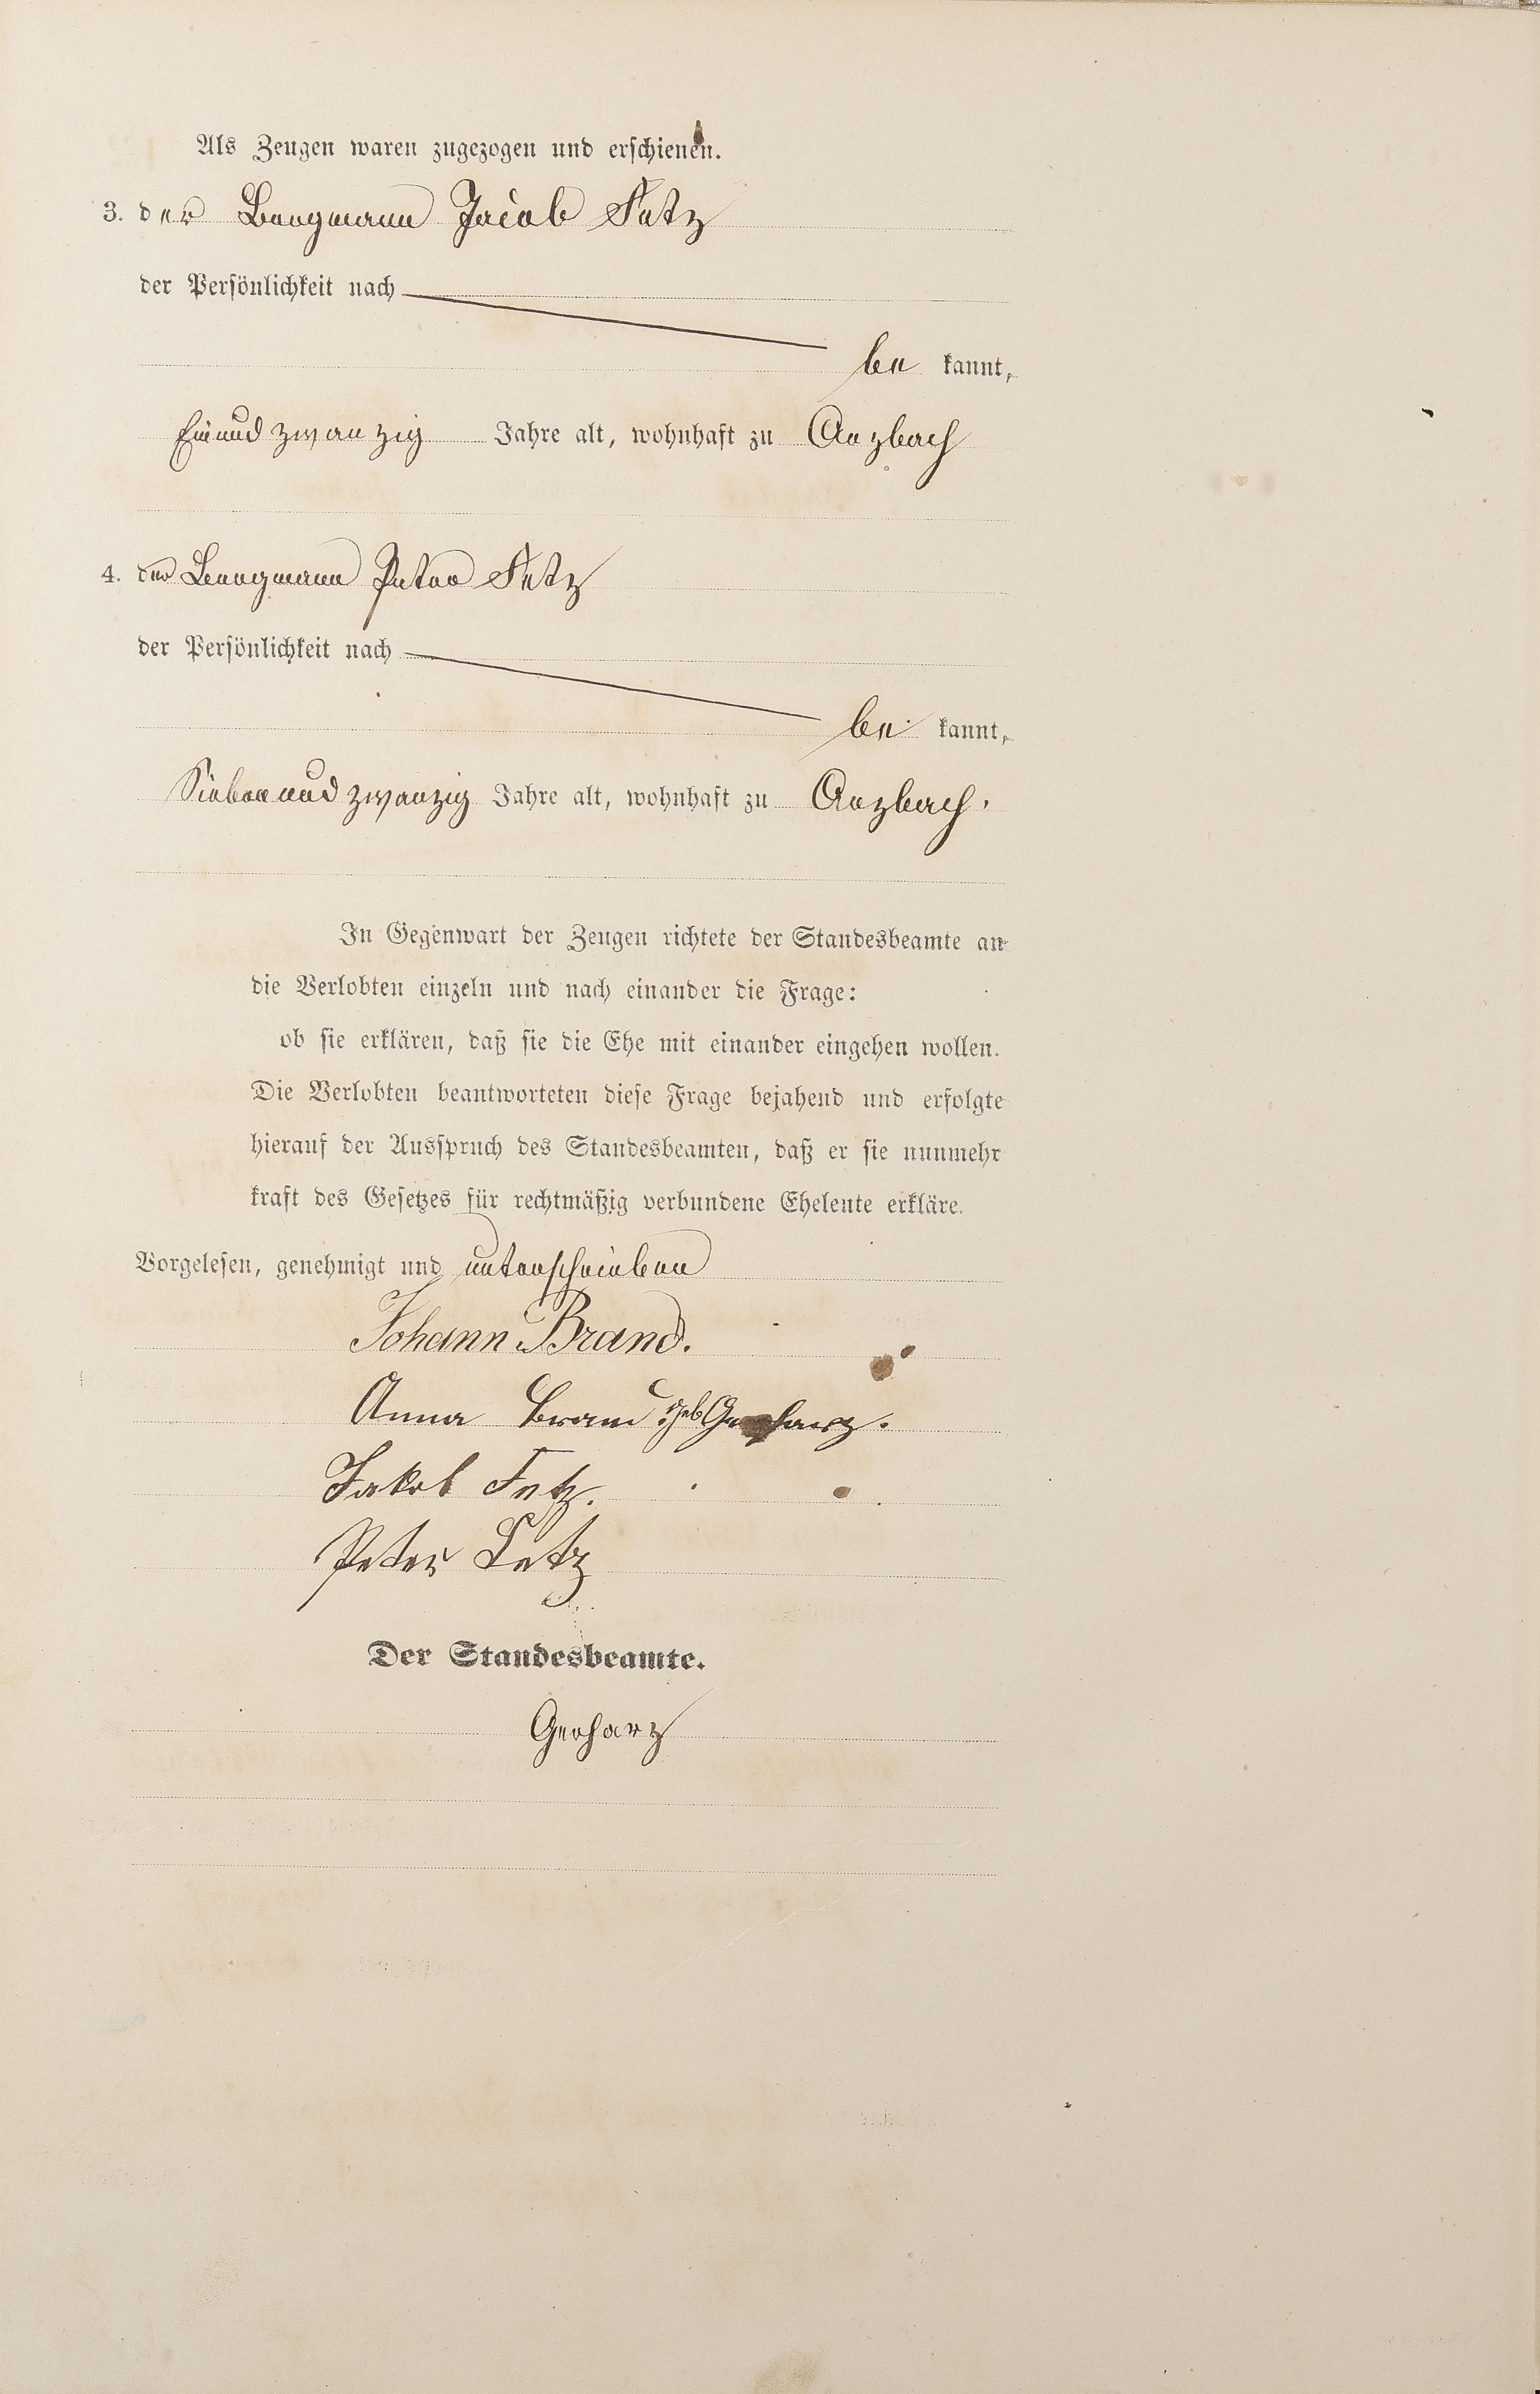 Als Zeugen waren zugezogen und erschienen.
3. der Bergmann Jacob Fetz
der Persönlichkeit nach
be kannt,
Einund zwanzig Jahre alt, wohnhaft zu Arzbach
4. der Bergmann Peter Fetz
der Persönlichkeit nach
be kannt,
Siebenund zwanzig Jahre alt, wohnhaft zu Arzbach.
In Gegenwart der Zeugen richtete der Standesbeamte an
die Verlobten einzeln und nach einander die Frage:
ob sie erklären, daß sie die Ehe mit einander eingehen wollen.
Die Verlobten beantworteten diese Frage bejahend und erfolgte
hierauf der Ausspruch des Standesbeamten, daß er sie nunmehr
kraft des Gesetzes für rechtmäßig verbundene Eheleute erkläre.
Vorgelesen, genehmigt und unterschrieben
Johann Brand.
Anna Brand geb Gerharz.
Jakob Fetz.
Peter Fetz
Der Standesbeamte.
Gerharz